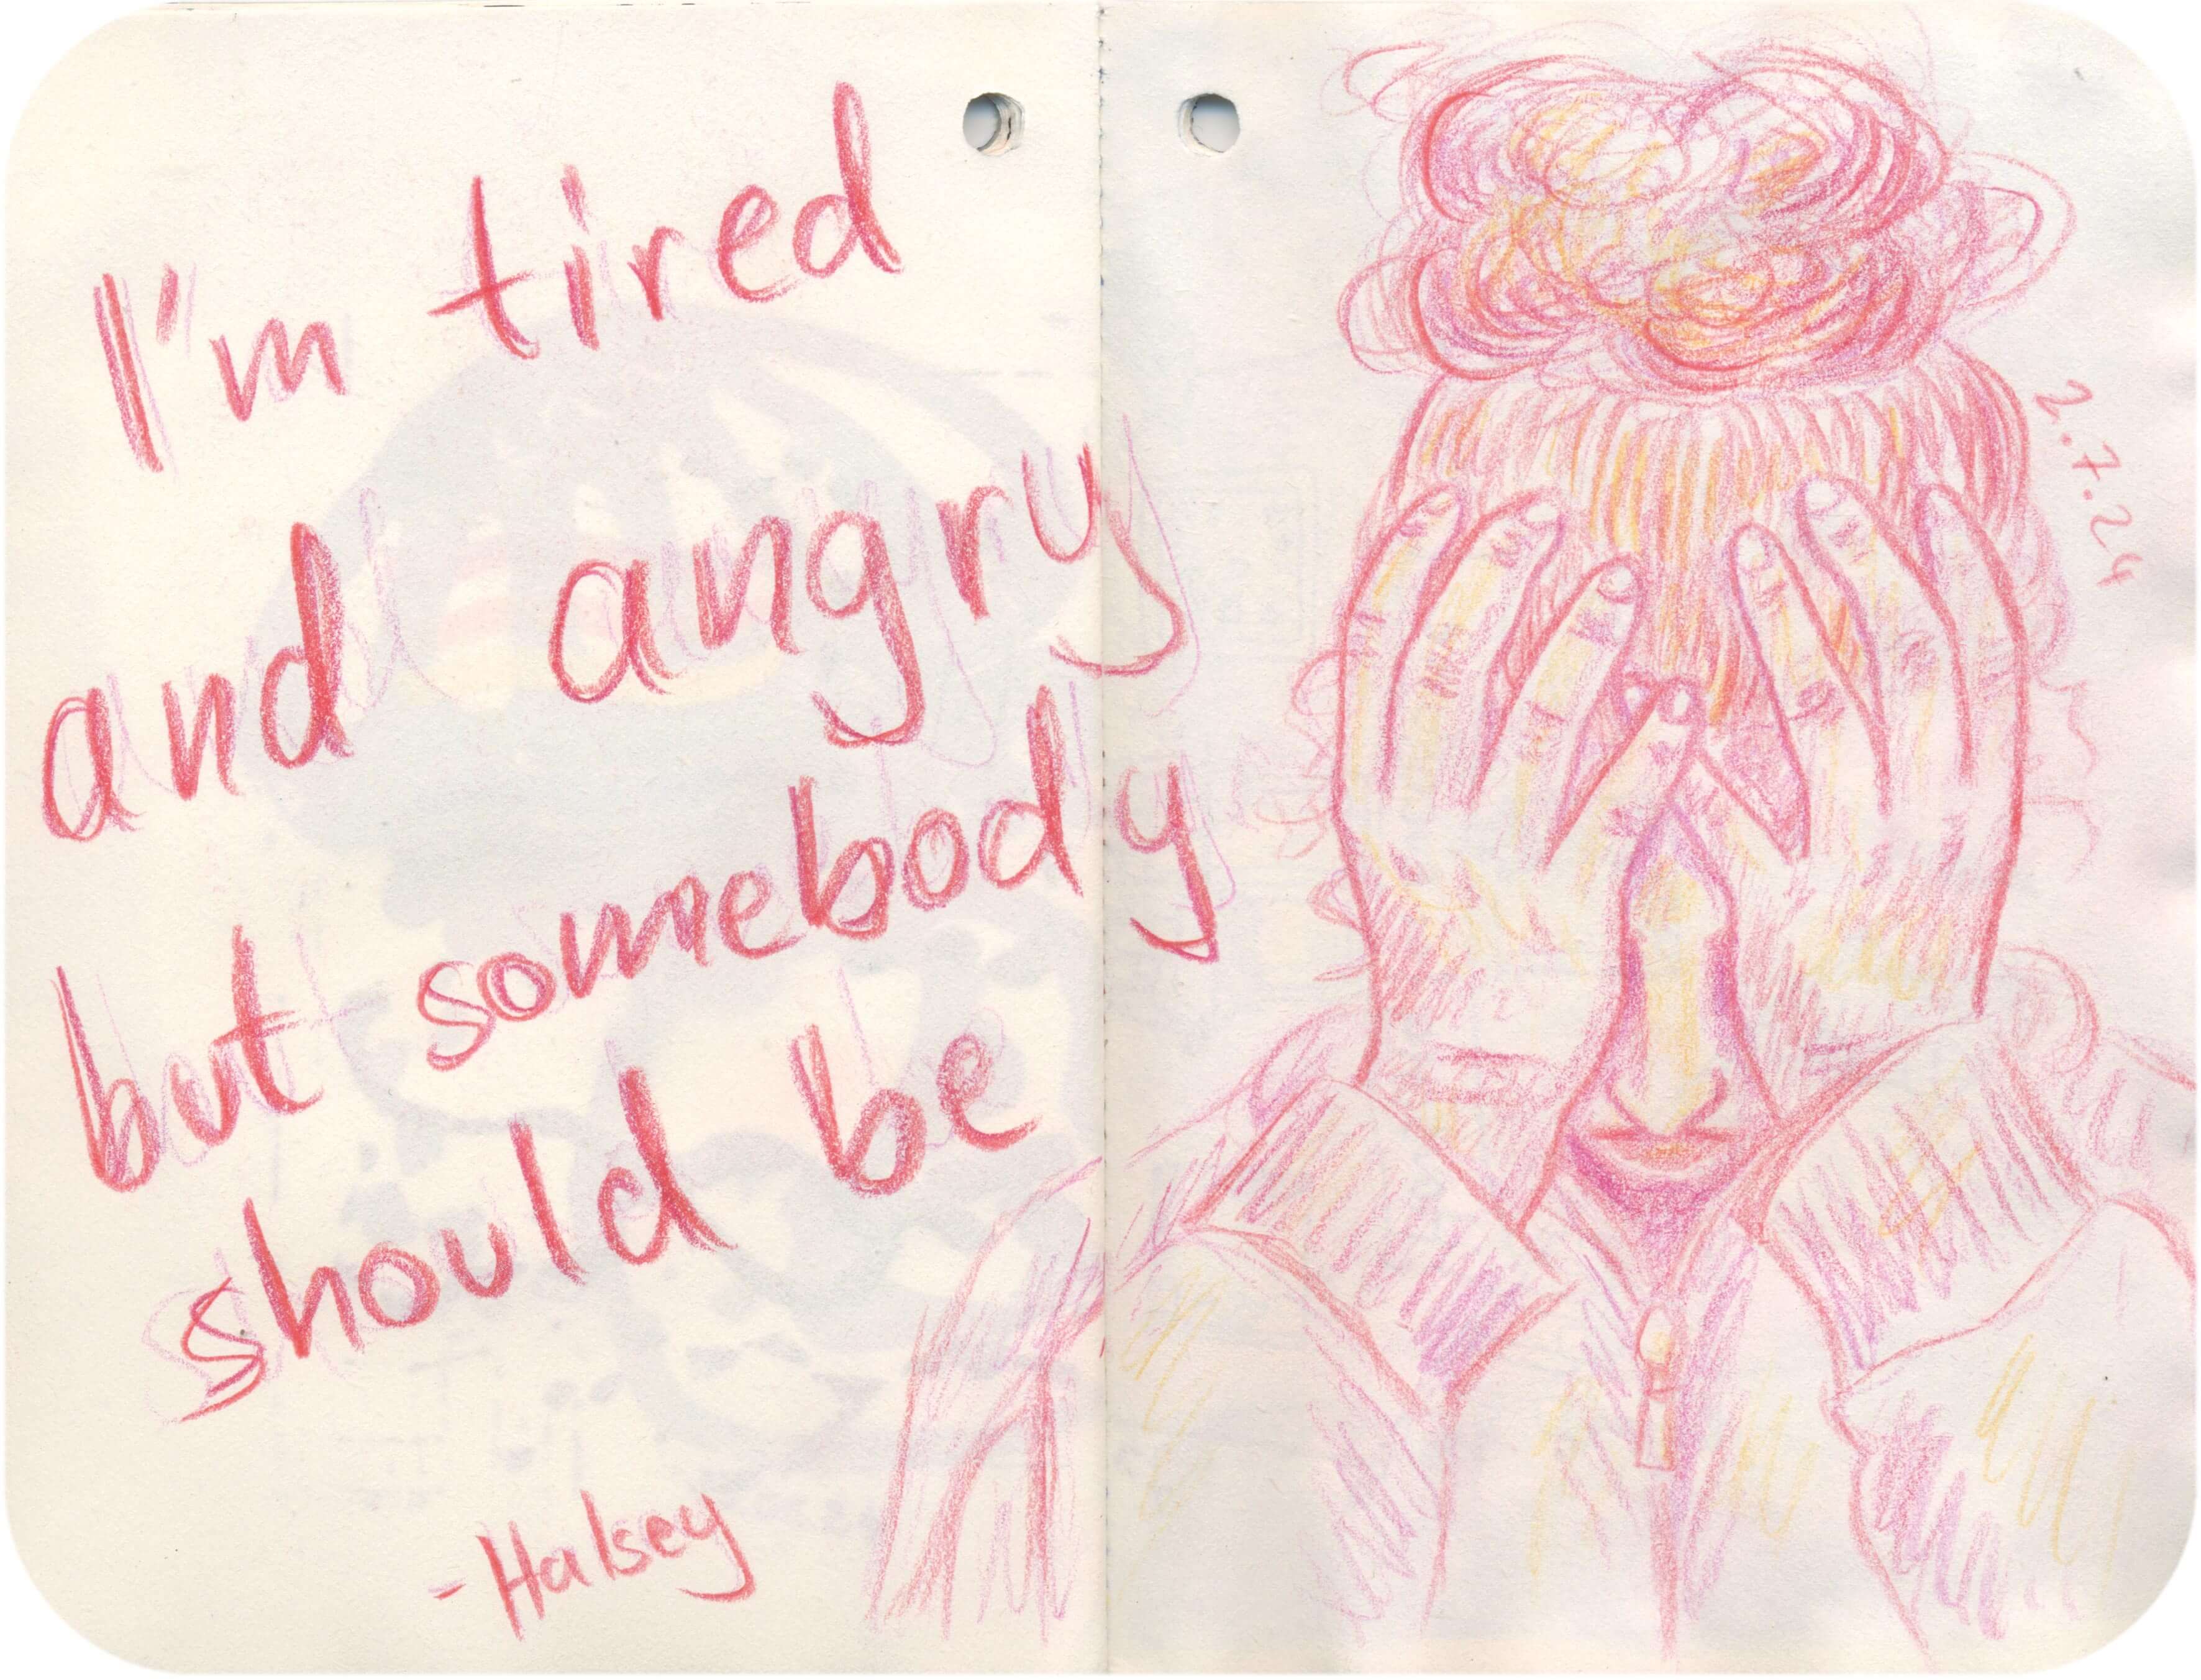 I'm tired
and angry
but somebody
should be
-Halsey
2.7.24